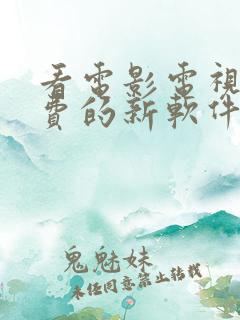 看電影電視
費的新軟件
鬼魅妹
未經同意禁止转载